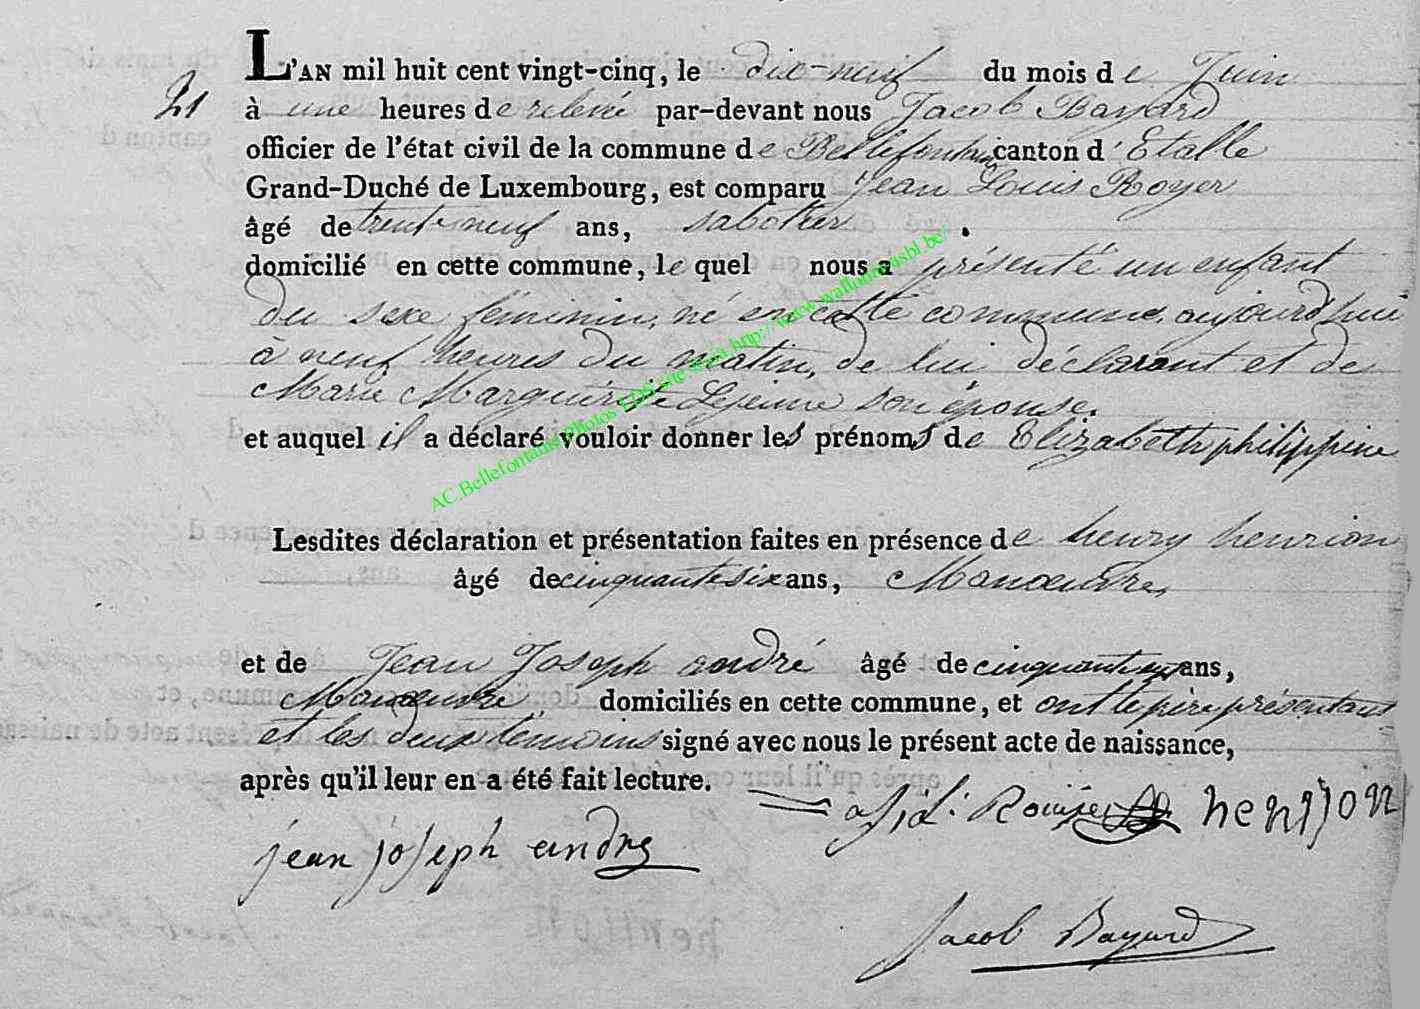 L'AN mil huit cent vingt-cinq, le dix-neuf du mois de Juin
21
à une heures de relevé par-devant nous Jacob Bayard
officier de l'état civil de la commune de Bellefontaine canton d'Etalle
Grand-Duché de Luxembourg, est comparu Jean Louis Royer
âgé de trente neuf ans, sabotier
domicilié en cette commune, le quel nous a présenté un enfant
du sexe féminin, né en cette commune, aujourd'hui
à neuf heures du matin, de lui déclarant et de
Marie Marguerite Lejeune son épouse.
et auquel il a déclaré vouloir donner les prénoms de Elizabeth philippine
Lesdites déclaration et présentation faites en présence de henry henrion
âgé de cinquante six ans, Manœuvre,
et de Jean Joseph andré âgé de ans,
Manœuvre domiciliés en cette commune, et ont le père présentant
et les deux témoins signé avec nous le présent acte de naissance,
après qu'il leur en a été fait lecture.
henrjon
jean joseph andre
Jacob Bayard
AC.Bellefontaine Photos LDS site http://www.wallonia-asbl.be/